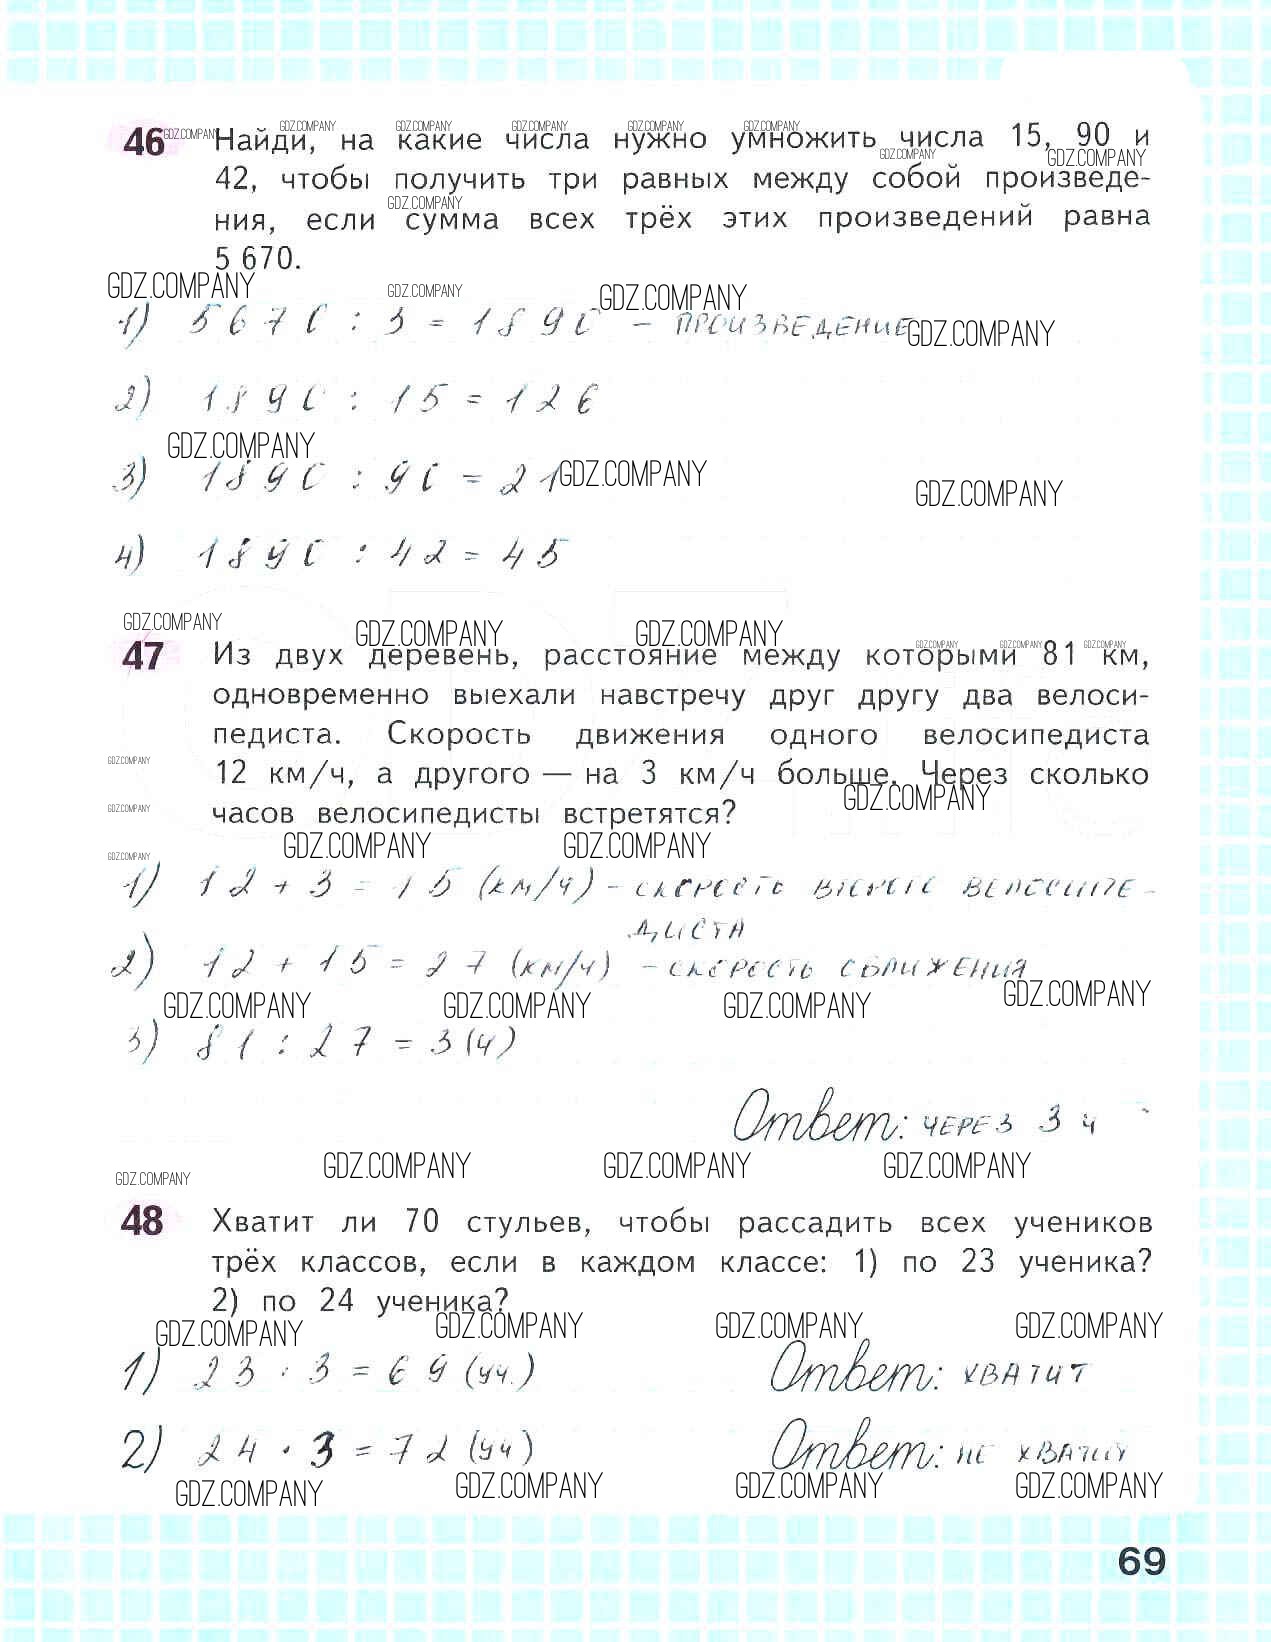 46 Найди, на какие числа нужно умножить числа 15, 90 и
42, чтобы получить три равных между собой произведе-
ния, если сумма всех трёх этих произведений равна
5 670.
1) 5670 : 3 = 1890 - произведение
2) 1890 : 15 = 126
3) 1890 : 90 = 21
4) 1890 : 42 = 45
47 Из двух деревень, расстояние между которыми 81 км,
одновременно выехали навстречу друг другу два велоси-
педиста. Скорость движения одного велосипедиста
12 км/ч, а другого — на 3 км/ч больше. Через сколько
часов велосипедисты встретятся?
1) 12 + 3 = 15 (км/ч) - скорость второго велосипе-
диста
2) 12 + 15 = 27 (км/ч) - скорость сближения
3) 81 : 27 = 3 (ч)
Ответ: через 3 ч
48 Хватит ли 70 стульев, чтобы рассадить всех учеников
трёх классов, если в каждом классе: 1) по 23 ученика?
2) по 24 ученика?
1) 23 · 3 = 69 (уч.) Ответ: хватит
2) 24 · 3 = 72 (уч) Ответ: не хватит
69
GDZ.COMPANY